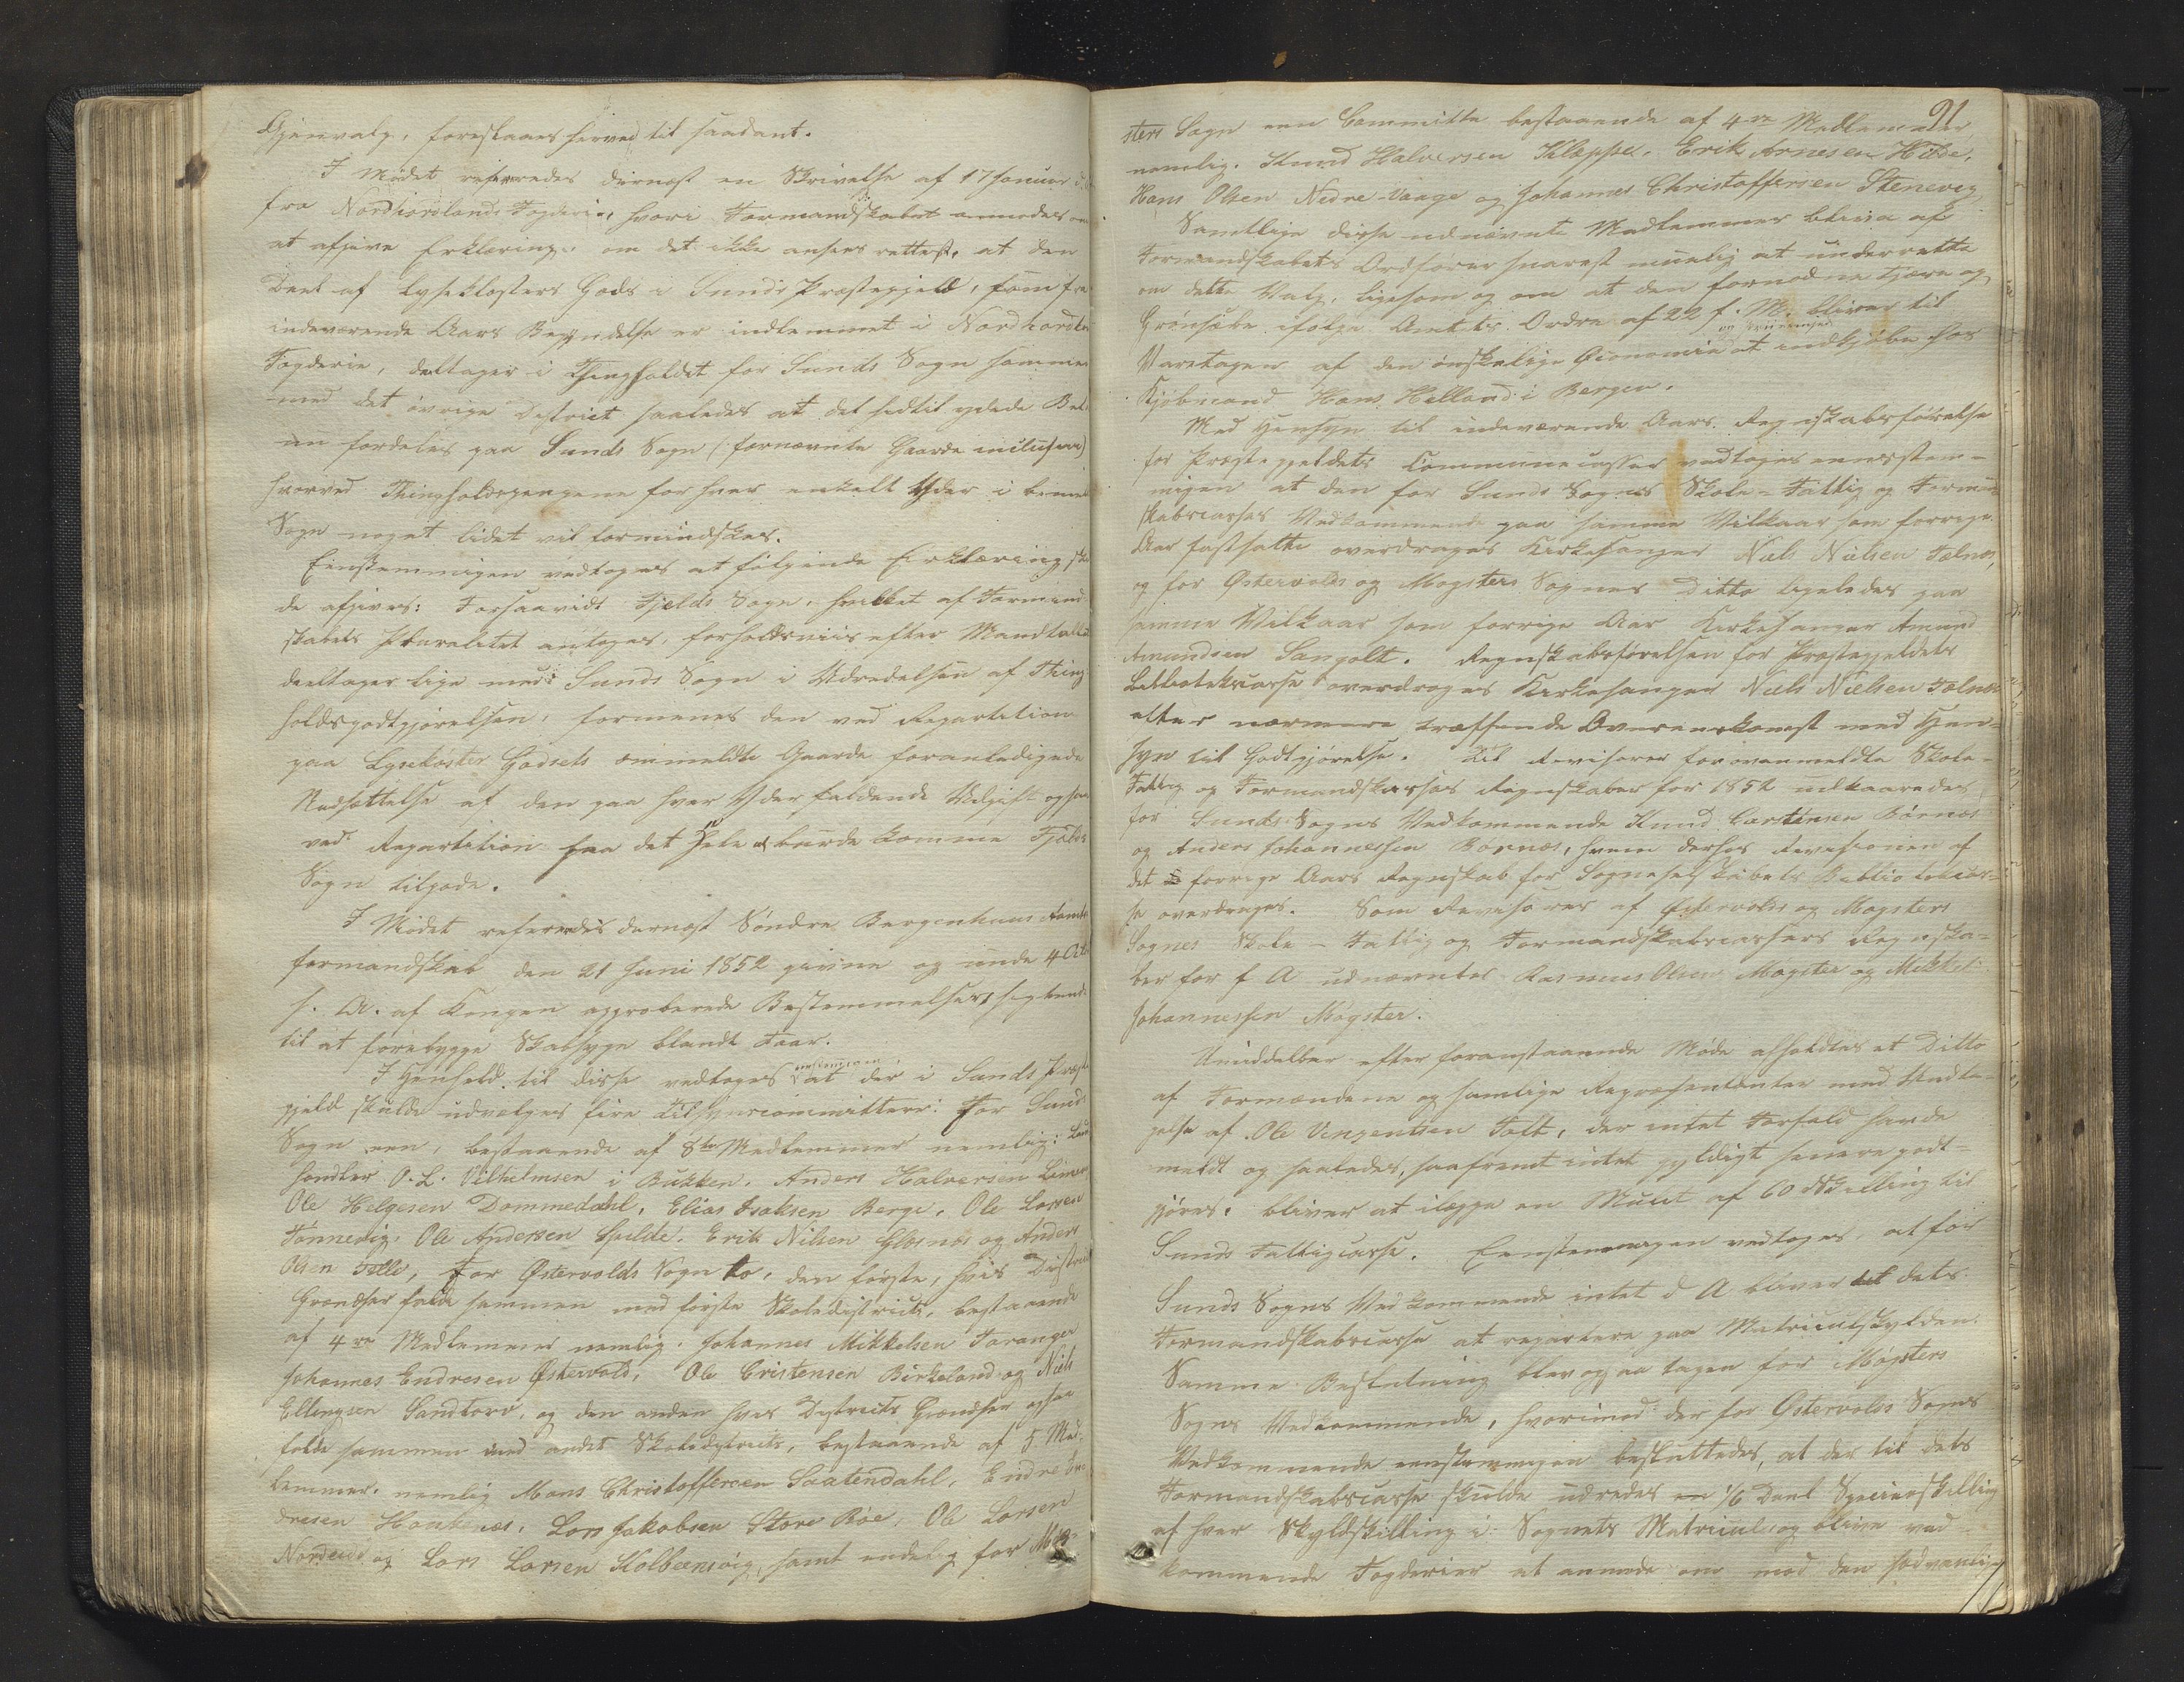 Gjenvalg, foreslaaes herved til saadant.
I Mødet refereredes dernæst en Skrivelse af 17 Januar d. A.
fra Nordhordlands Fogderie, hvori Formandskabet anmodes om
at afgive Erklæring, om det ikke ansees rettest, at den
Deel af Lyseklosters Gods i Sunds Præstegjeld, som fra
indeværende Aars Begyndelse er indlemmet i Nordhordlands
Fogderie, deltager i Thingholdet for Sunds Sogn sammen
med det øvrige District saaledes at det hidtil ydede Belø-
 fordeles paa Sunds Sogn (fornævnte Gaarde inclusive)
hvorved Thingholdspengene for hver enkelt Yder i bemeldte
Sogn noget lidet vil formindskes.
Eenstemmigen vedtoges at følgende Erklæring skul-
de afgives: Forsaavidt Fjelds Sogn, hvilket af Formand-
skabets Pluralitet antoges, forholdsviis efter Mandtallet
deeltager lige med Sunds Sogn i Udredelsen af Thing-
holdsgodtgjørelsen, formenes den ved Repartition
paa Lysekloster Godsets ommeldte Gaarde foranledigede
Nedsættelse af den paa hver Yder faldende Udgift ogsaa
ved Repartition paa det Hele at burde komme Fjelds
Sogn tilgode.
I Mødet refereredes dernæst Søndre Bergenhuus Amts
formandskab den 21 Juni 1852 givne og under 4 Oct.
s. A. af Kongen approberede Bestemmelser, sigtende
til at forebygge Skabsyge blandt Faar.
I Henhold til disse vedtoges eenstemmigen at der i Sunds Præste-
gjeld skulde udvælges fire Tilsynscommitteer: For Sunds
Sogn een, bestaaende af 8te Medlemmer nemlig: Land-
handler O. L. Vilhelmsen i Bukken, Anders Halversen
Ole Helgesen Dommedahl, Elias Isaksen Berge, Ole Larsen
Tønnevig, Ole Andersen Spilde, Erik Nilsen Glesnæs og Anders
Olsen Telle, For Østervolds Sogn to, den første, hvis Districts
Grændser falde sammen med første Skoledistricts, bestaaende
af 4re Medlemmer nemlig: Johannes Mikkelsen Taranger
Johannes Endresen Østervold, Ole Cristensen Birkeland og Niels
Ellingsen Sandtorv, og den anden hvis Districts Grændser ogsaa
falde sammen med andet Skoledistricts, bestaaende af 5 Med-
lemmer, nemlig Mons Christoffersen Skatendahl, Endre En-
dresen Haukenæs, Lars Jakobsen Store Bøe, Ole Larsen
Nordeide og Lars Larsen Kolbeensvig, samt endelig for Møg-
91
sters Sogn een Committe bestaaende af 4re Medlemmer
nemlig: Knud Halversen Kleppe, Erik Arnesen Hilde,
Hans Olsen Nedre-Vaage og Johannes Christoffersen Stenevig.
Samtlige disse udnævnte Medlemmer blive af
Formandskabets Ordfører snarest muelig at underrette
om dette Valg, ligesom og om at den fornødne Tjære og
Grønsæbe ifølge Amtets Ordre af 22 f. M. bliver til
Varetagen af den ønskelige Øconomie at indkjøbe hos
Kjøbmand Hans Helland i Bergen.
Med Hensyn til indeværende Aars Regnskabsførelse
for Præstegjeldets Communecasser vedtoges eenstem-
migen at den for Sunds Sogns Skole- Fattig og Formand-
skabscasses Vedkommende paa samme Vilkaar som forrige
Aar fastsatte overdrages Kirkesanger Niels Nielsen Tælnæs,
og for Østervolds og Møgsters Sognes Ditto ligeledes paa
samme Vilkaar som forrige Aar Kirkesanger Amund
Amundsen Sangolt. Regnskabsførelsen for Præstegjeldets
Bibliotekscasse overdroges Kirkesanger Niels Nielsen Tælnæs
efter nærmere træffende Overenskomst med Hen-
syn til Godtgjørelse. Til Revisorer for ovenmeldte Skole-
Fattig og Formandskasses Regnskaber for 1852 udkaaredes
for Sunds Sogns Vedkommende Knud Carstensen Børnæs
og Anders Johannessen Børnæs, hvem derhos Revisionen af
det forrige Aars Regnskab for Sogneselskabets Bibliotekscas-
se overdroges. Som Revisorer af Østervolds og Møgsters
Sognes Skole- Fattig og Formandskabscassers Regnska-
ber for f A udnævntes Rasmus Olsen Møgster og Mikkel
Johannessen Møgster.
Umiddelbar efter foranstaaende Møde afholdtes et Ditto
af Formændene og samlige Repræsentanter med Undta-
gelse af Ole Vingentsen Toft, der intet Forfald havde
meldt og saaledes, saafremt intet gyldigt senere godt-
gjøres, bliver at ilægge en Mulct af 60 Skilling til
Sunds Fattigcasse. Eenstemmigen vedtoges, at for
Sunds Sogns Vedkommende intet d A bliver til dets
Formandskabscasse at repartere paa Matriculskylden.
Samme Beslutning blev ogsaa tagen for Møgsters
Sogns Vedkommende, hvorimod der for Østervolds Sogns
Vedkommende eenstemmigen besluttedes, at der til dets
Formandskabscasse skulde udredes en 1/6 Deel Speciesskilling
af hver Skyldskilling i Sognets Matricul og blive ved-
kommende Fogderier at anmode om mod den sædvanlige